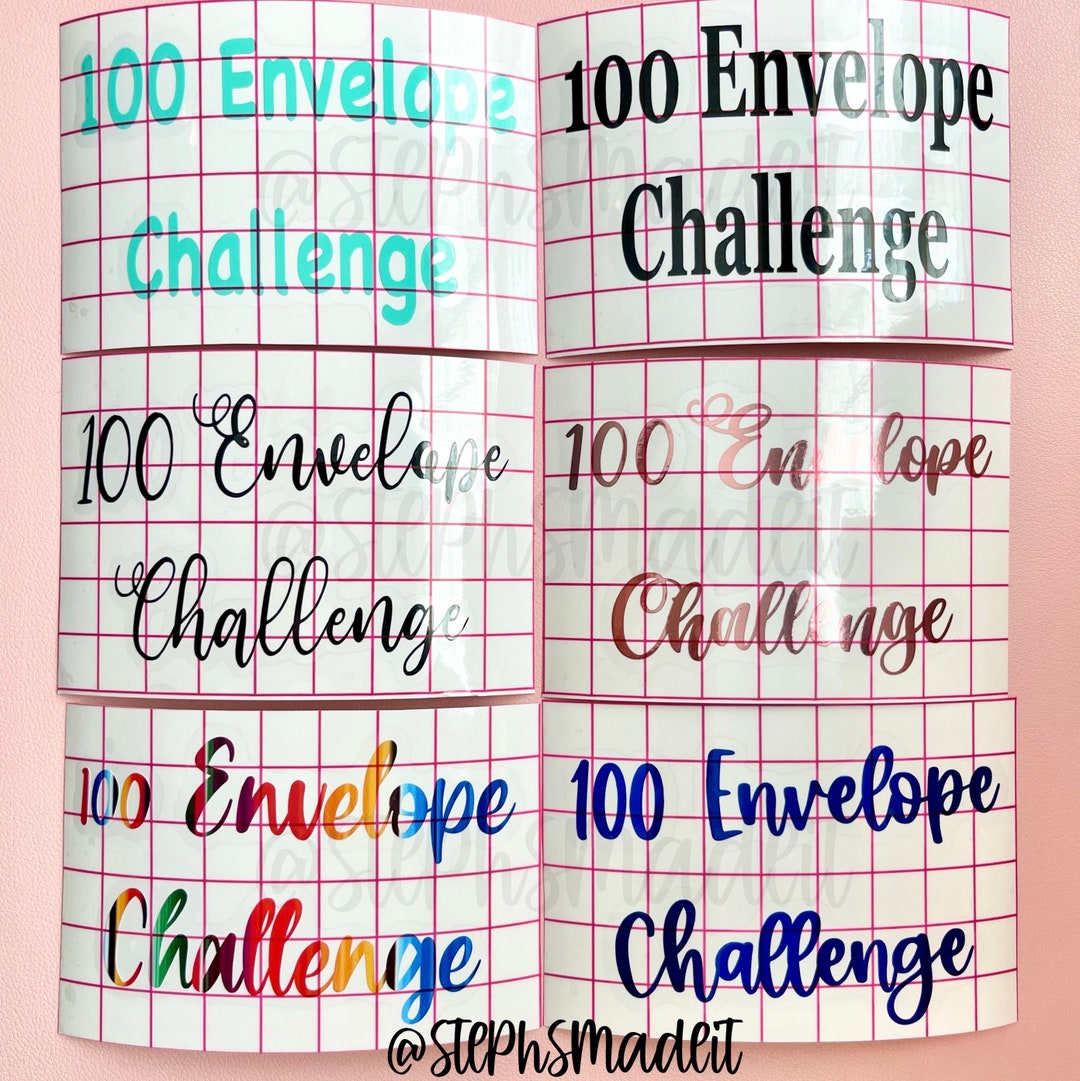 100 Envelope
Challenge
100 Envelope
Challenge
@StephSMadeit
100 Envelope
Challenge
100 Envelope
Challenge
@StephSMadeit
100 Envelope
Challenge
100 Envelope
Challenge
@StephSMadeit
@StephSMadeit